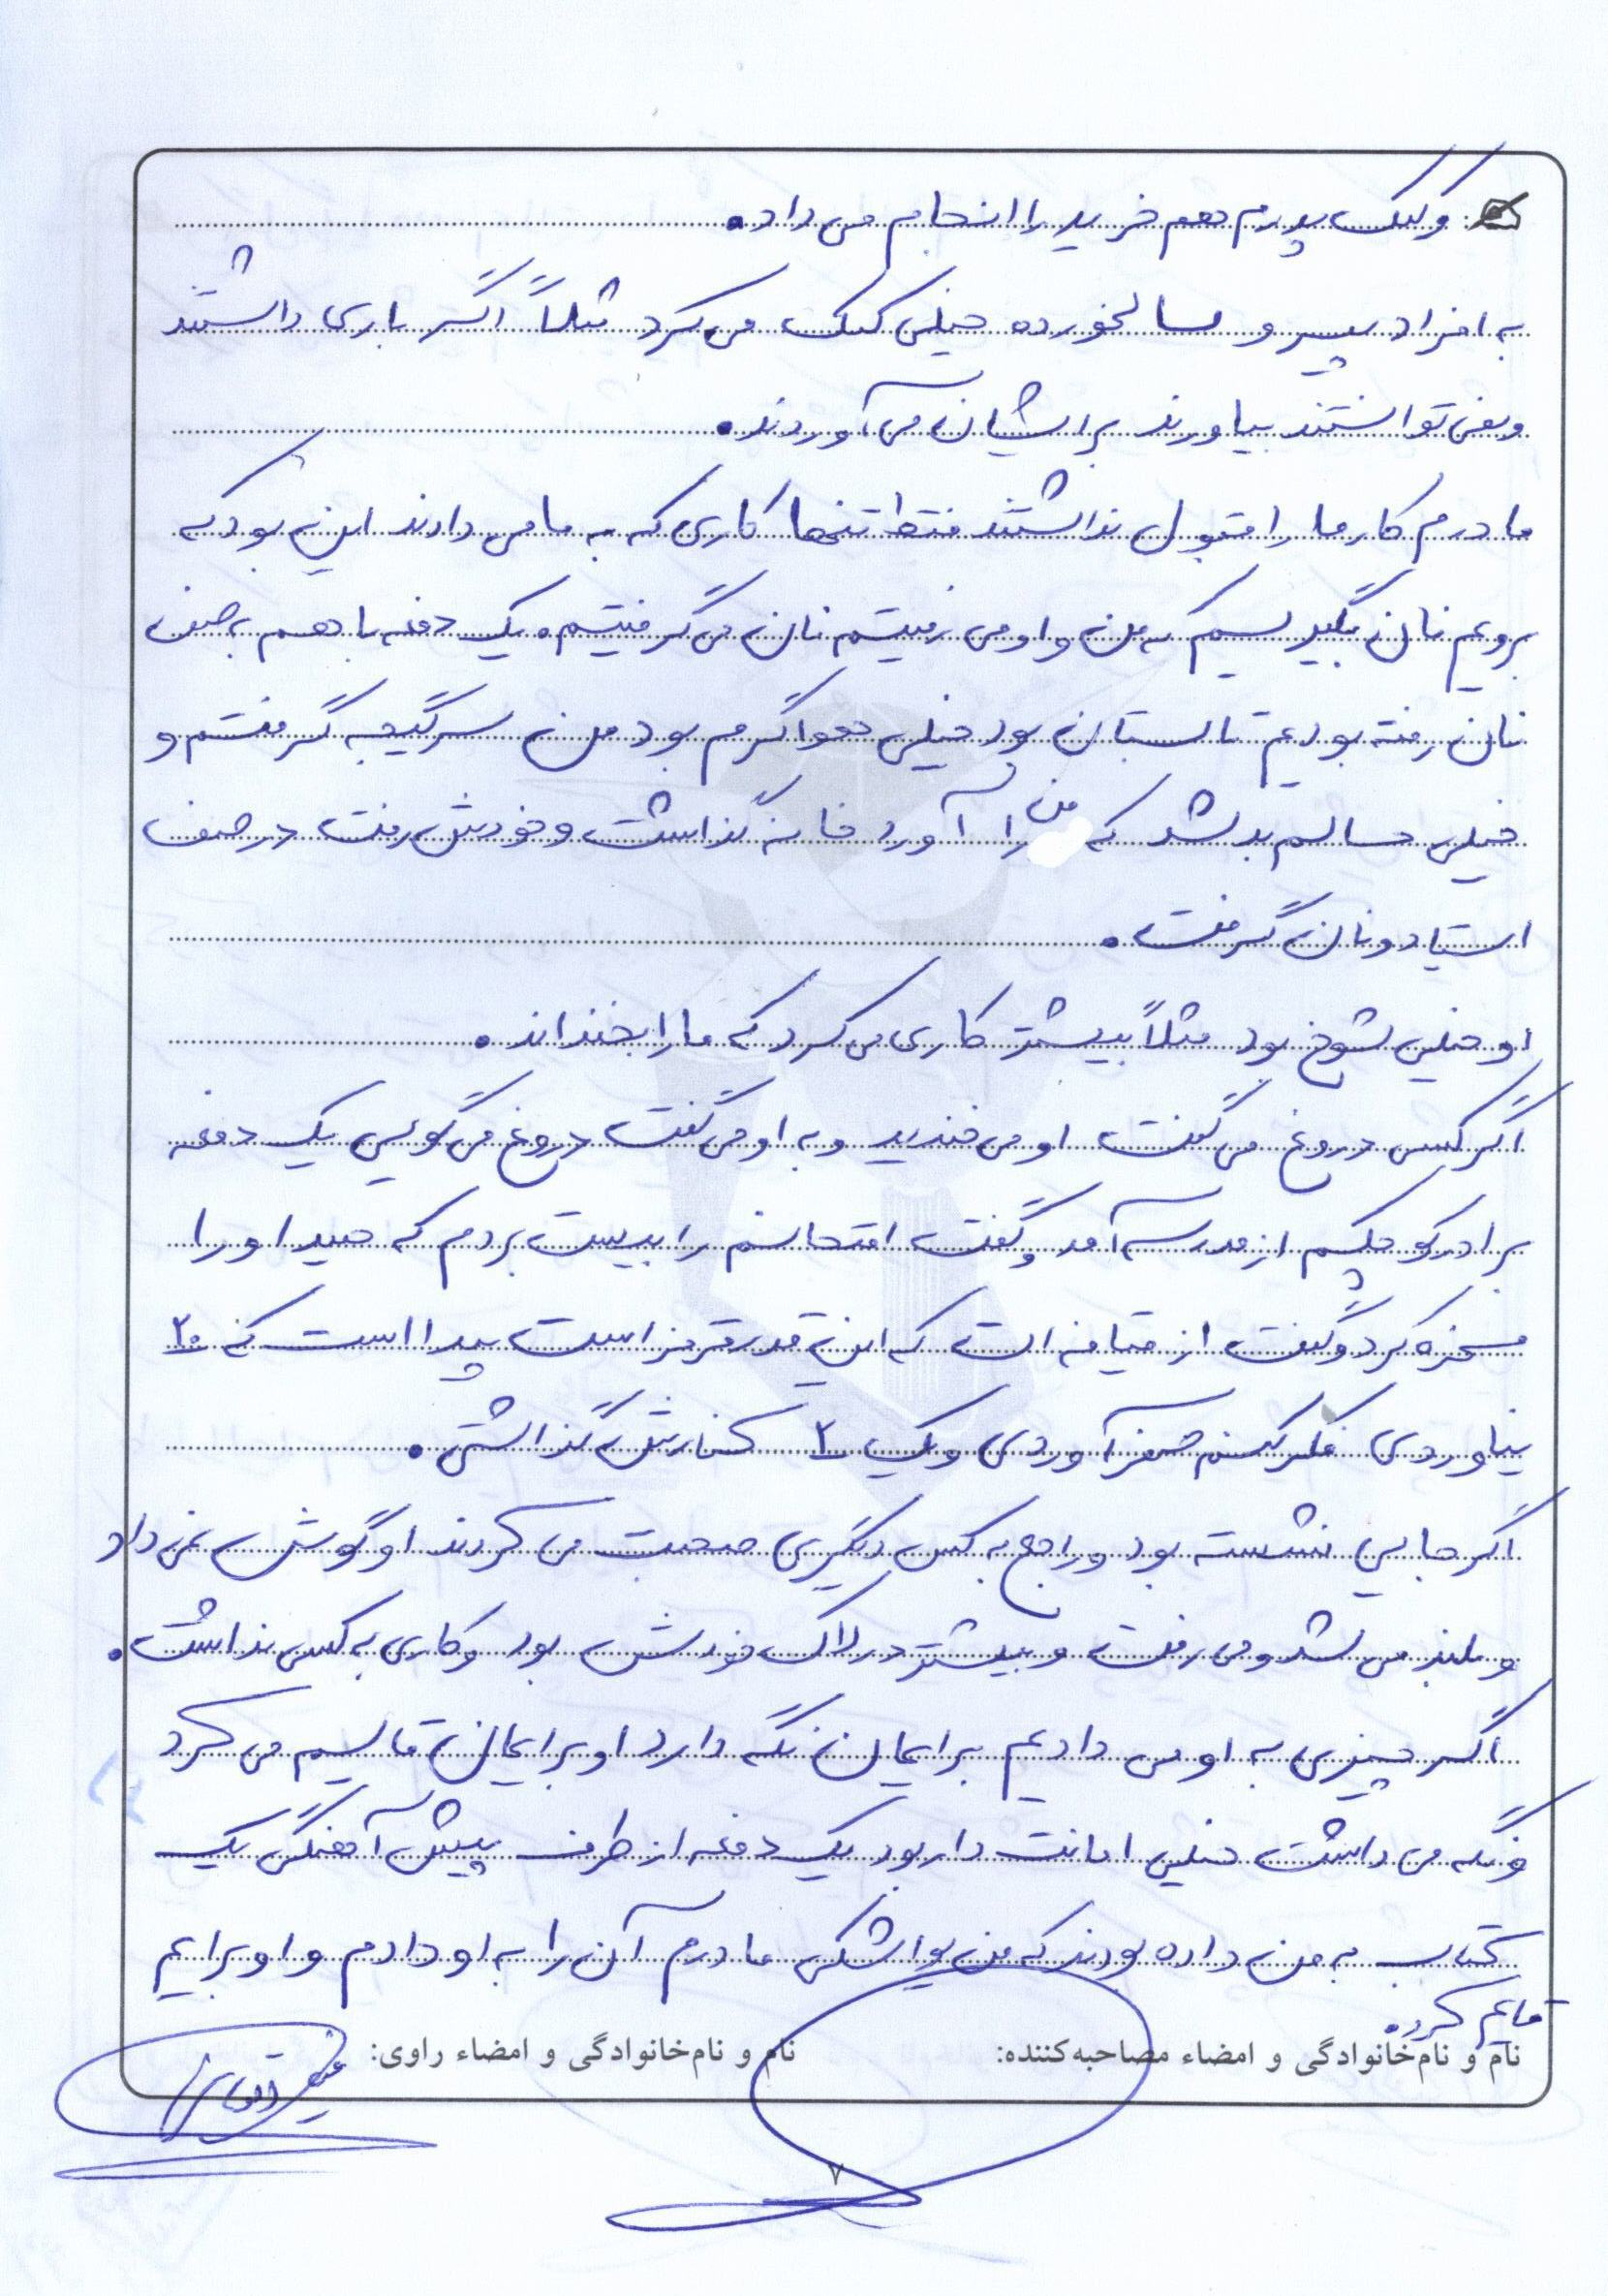 و کمک پدرم هم خرید را انجام می داد.
به افراد پیر و سالخورده خیلی کمک می کرد مثلاً اگر باری داشتند
و نمی توانستند بیاورند برایشان می آوردند.
مادرم کار ما را قبول نداشتند فقط تنها کاری که به ما می دادند این بود که
برویم نان بگیریم که من و او می رفتیم نان می گرفتیم. یک دفعه با هم به صف
نان رفته بودیم تابستان بود خیلی هوا گرم بود من سرگیجه گرفتم و
خیلی حالم بد شد که من را آورد خانه گذاشت و خودش رفت در صف
ایستاد و نان گرفت.
او خیلی شوخ بود مثلاً بیشتر کاری می کرد که ما را بخنداند.
اگر کسی دروغ می گفت او می خندید و به او می گفت دروغ می گوئی یک دفعه
برادر کوچکم از مدرسه آمد و گفت امتحانم را بیست بردم که حمید او را
مسخره کرد و گفت از قیافه ات که این قدر قرمز است پیدا است که ۲۰
نیاوردی فکر کنم صفر آوردی و یک ۲ کنارش گذاشتی.
اگر جایی نشسته بود و راجع به کس دیگری صحبت می کردند او گوش نمی داد
و بلند می شد و می رفت و بیشتر در لاک خودش بود و کاری به کسی نداشت.
اگر چیزی به او می دادیم برایمان نگه دارد او برایمان قایم می کرد
و نگه می داشت خیلی امانت دار بود یک دفعه از طرف پیش آهنگی یک
کتاب به من داده بودند که من یواشکی مادرم آن را به او دادم و او برایم
قایم کرد.
نام و نام‌خانوادگی و امضاء مصاحبه‌کننده: نام و نام‌خانوادگی و امضاء راوی:
۷